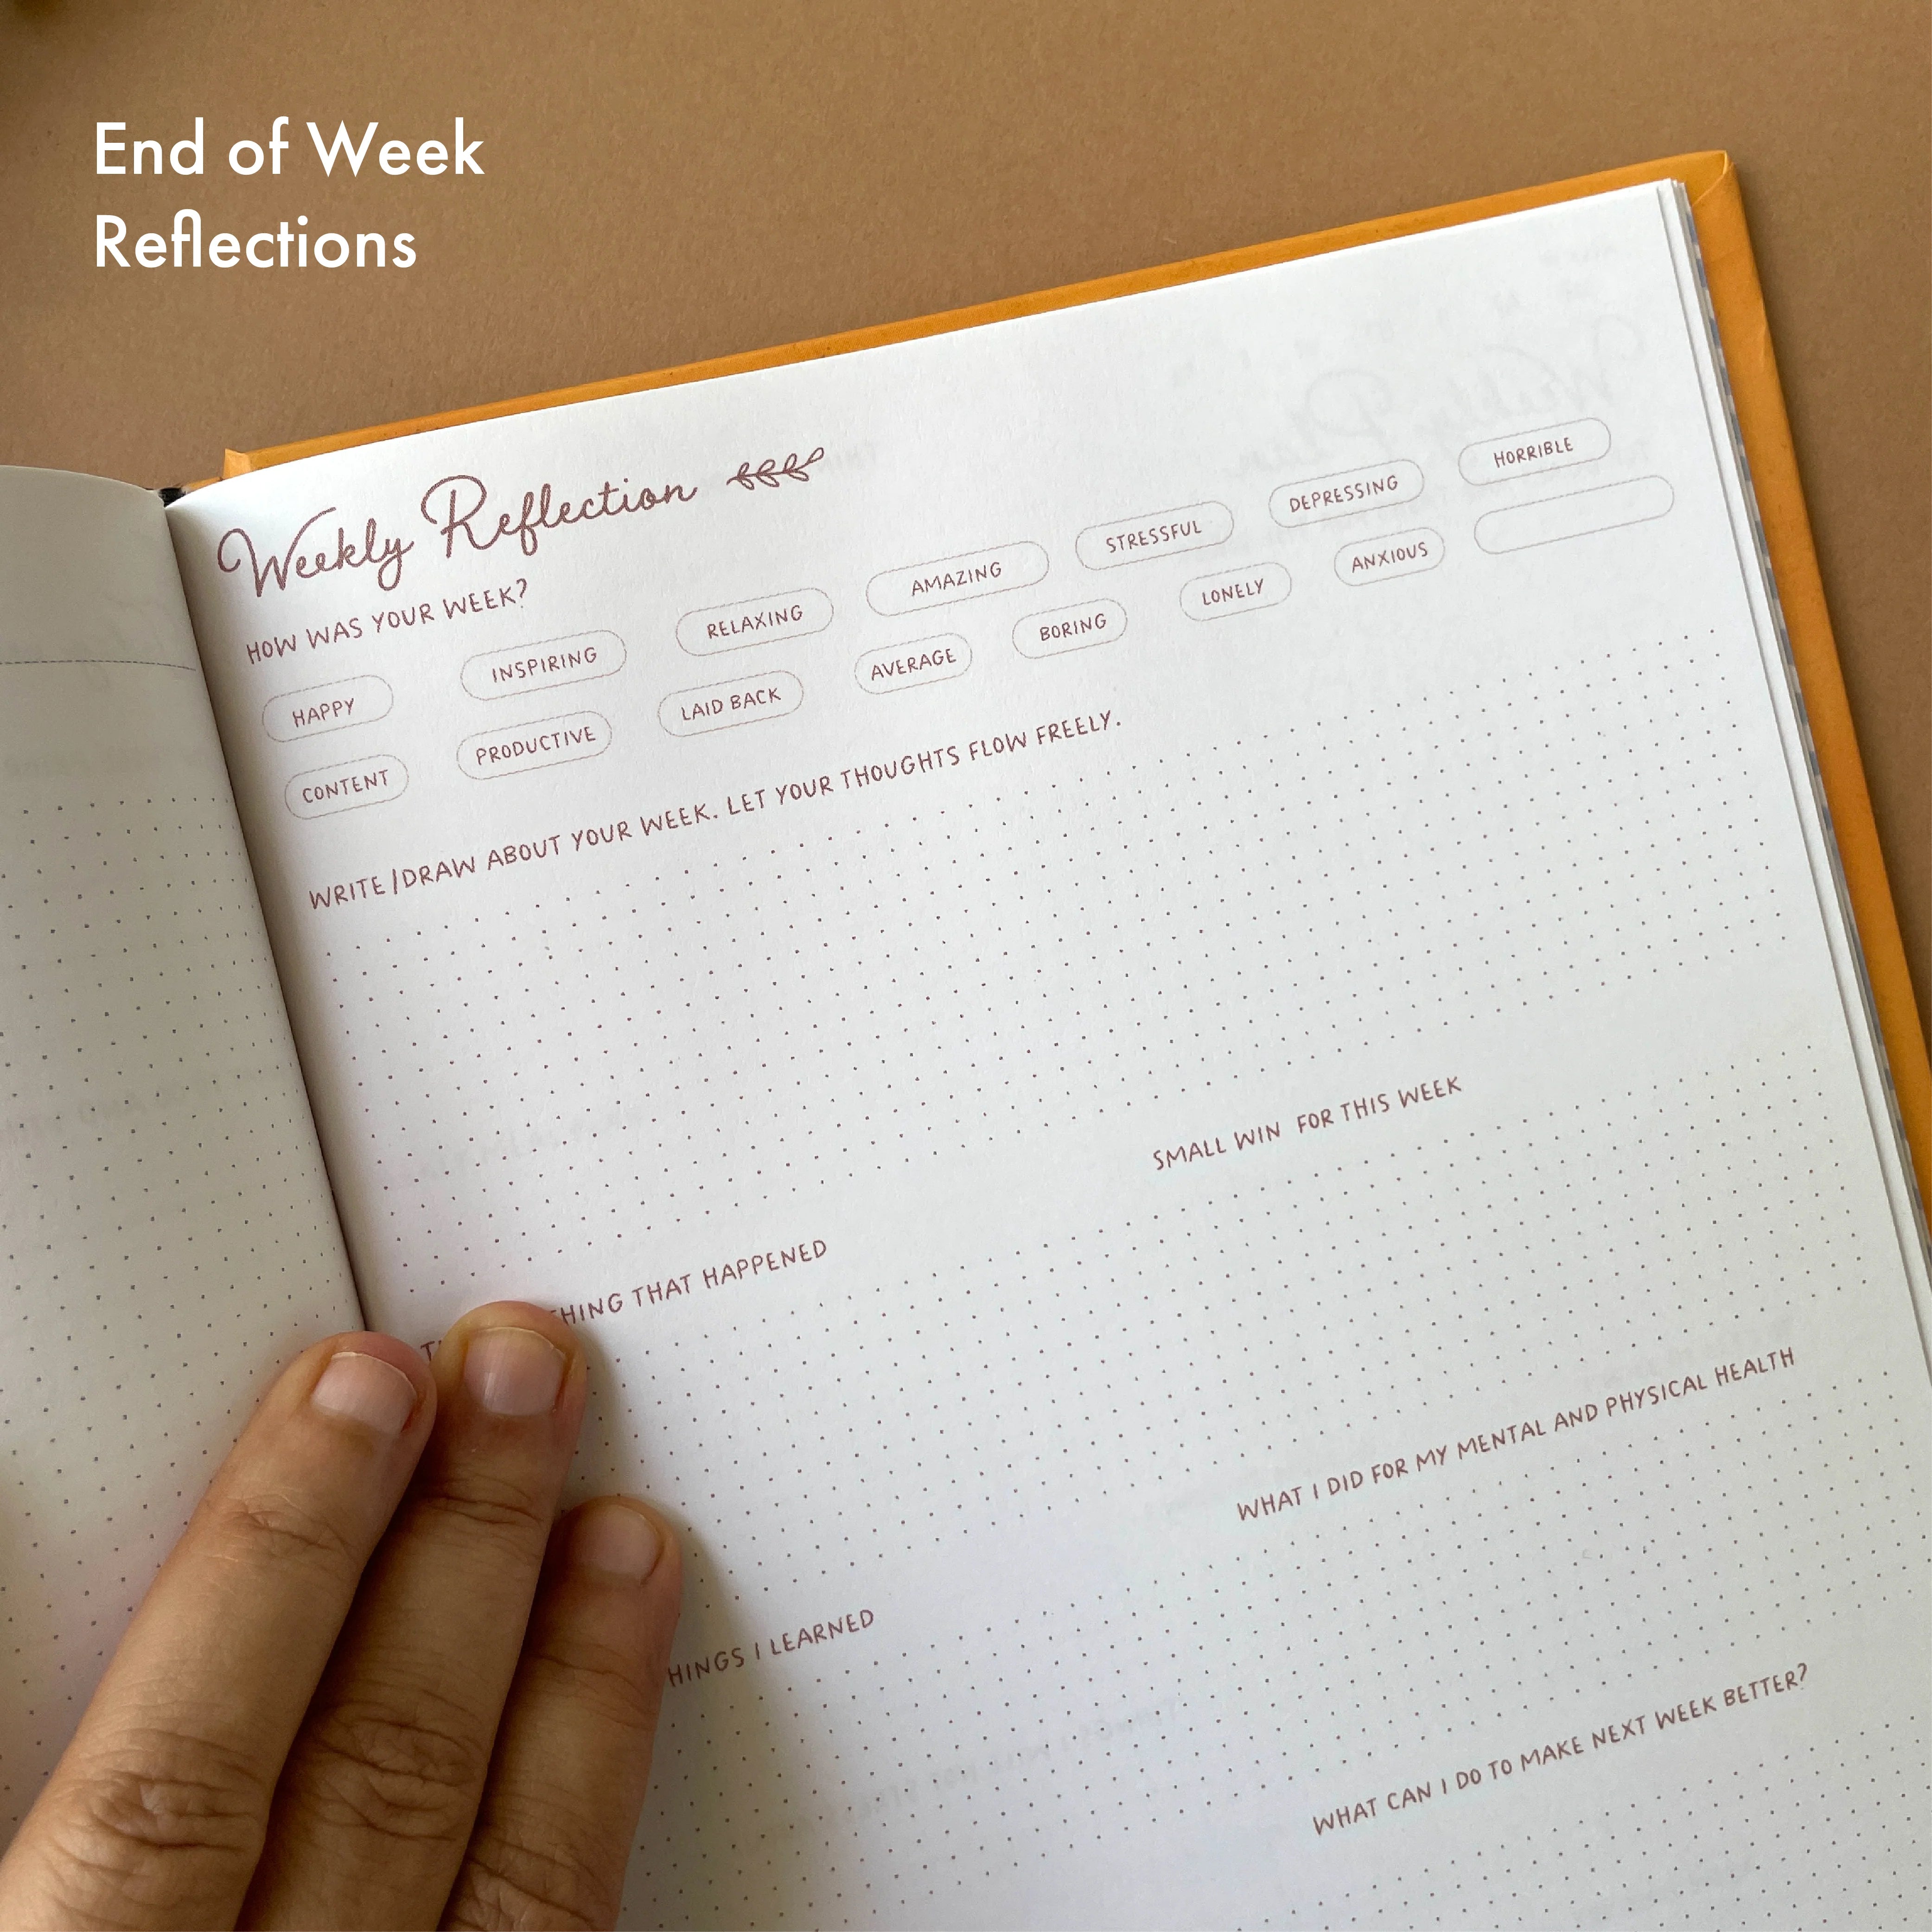 End of Week
Reflections
Weekly Reflection
HOW WAS YOUR WEEK?
HAPPY INSPIRING RELAXING AMAZING STRESSFUL DEPRESSING HORRIBLE
CONTENT PRODUCTIVE LAID BACK AVERAGE BORING LONELY ANXIOUS
WRITE/DRAW ABOUT YOUR WEEK. LET YOUR THOUGHTS FLOW FREELY.
THAT HAPPENED
SMALL WIN FOR THIS WEEK
I LEARNED
WHAT I DID FOR MY MENTAL AND PHYSICAL HEALTH
WHAT CAN I DO TO MAKE NEXT WEEK BETTER?